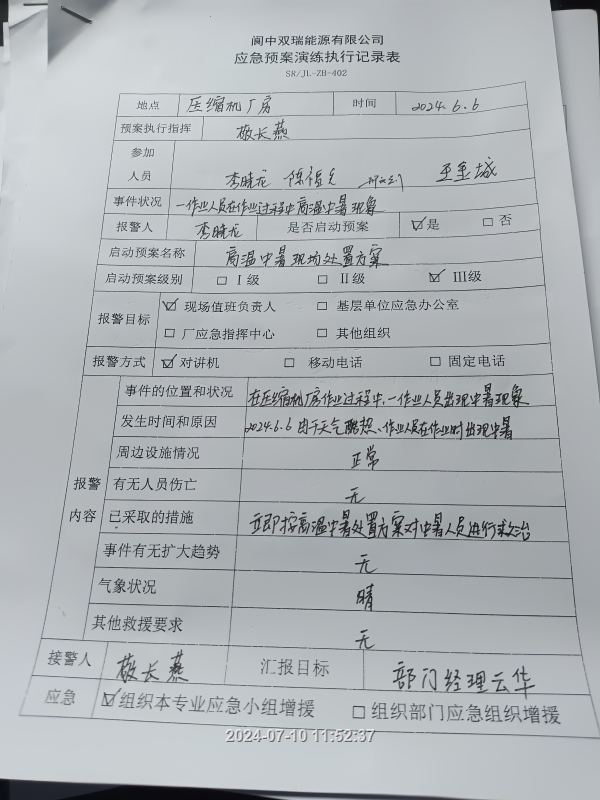 阆中双瑞能源有限公司
应急预案演练执行记录表
SR/JL-ZB-402
地点 压缩机厂房 时间 2024.6.6
预案执行指挥 敬长燕
参加
人员 李晓龙
事件状况 一作业人员在作业过程中高温中暑现象
报警人 李晓龙 是否启动预案 ☑是 □否
启动预案名称 高温中暑现场处置方案
启动预案级别 □ Ⅰ级 □ Ⅱ级 ☑ Ⅲ级
报警目标 ☑ 现场值班负责人 □ 基层单位应急办公室
□ 厂应急指挥中心 □ 其他组织
报警方式 ☑ 对讲机 □ 移动电话 □ 固定电话
报警内容
事件的位置和状况 在压缩机厂房作业过程中,一作业人员出现中暑现象
发生时间和原因 2024.6.6 由于天气酷热、作业人员在作业时出现中暑
周边设施情况 正常
有无人员伤亡 无
已采取的措施 立即按高温中暑处置方案对中暑人员进行救治
事件有无扩大趋势 无
气象状况 晴
其他救援要求 无
接警人 敬长燕 汇报目标 部门经理云华
应急 ☑组织本专业应急小组增援 □ 组织部门应急组织增援
2024-07-10 11:52:37